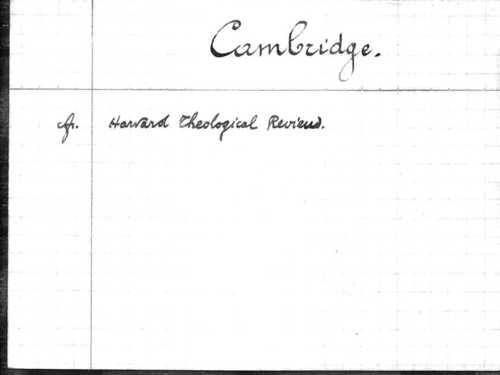 Cambridge.
cfr. Harvard Theological Review.